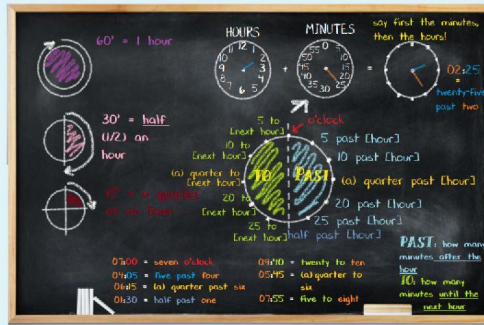 60' = 1 hour
30' = half
(1/2) an
hour
15' = a quarter
of an hour
HOURS
MINUTES
say first the minutes,
then the hours!
+
=
02:25
=
twenty-five
past two
o'clock
5 to
[next hour]
10 to
[next hour]
(a) quarter to
[next hour]
20 to
[next hour]
25 to
[next hour]
TO
PAST
5 past [hour]
10 past [hour]
(a) quarter past [hour]
20 past [hour]
25 past [hour]
half past [hour]
07:00 = seven o'clock
04:05 = five past four
06:15 = (a) quarter past six
01:30 = half past one
09:40 = twenty to ten
05:45 = (a) quarter to
six
07:55 = five to eight
PAST: how many
minutes after the
hour
TO: how many
minutes until the
next hour